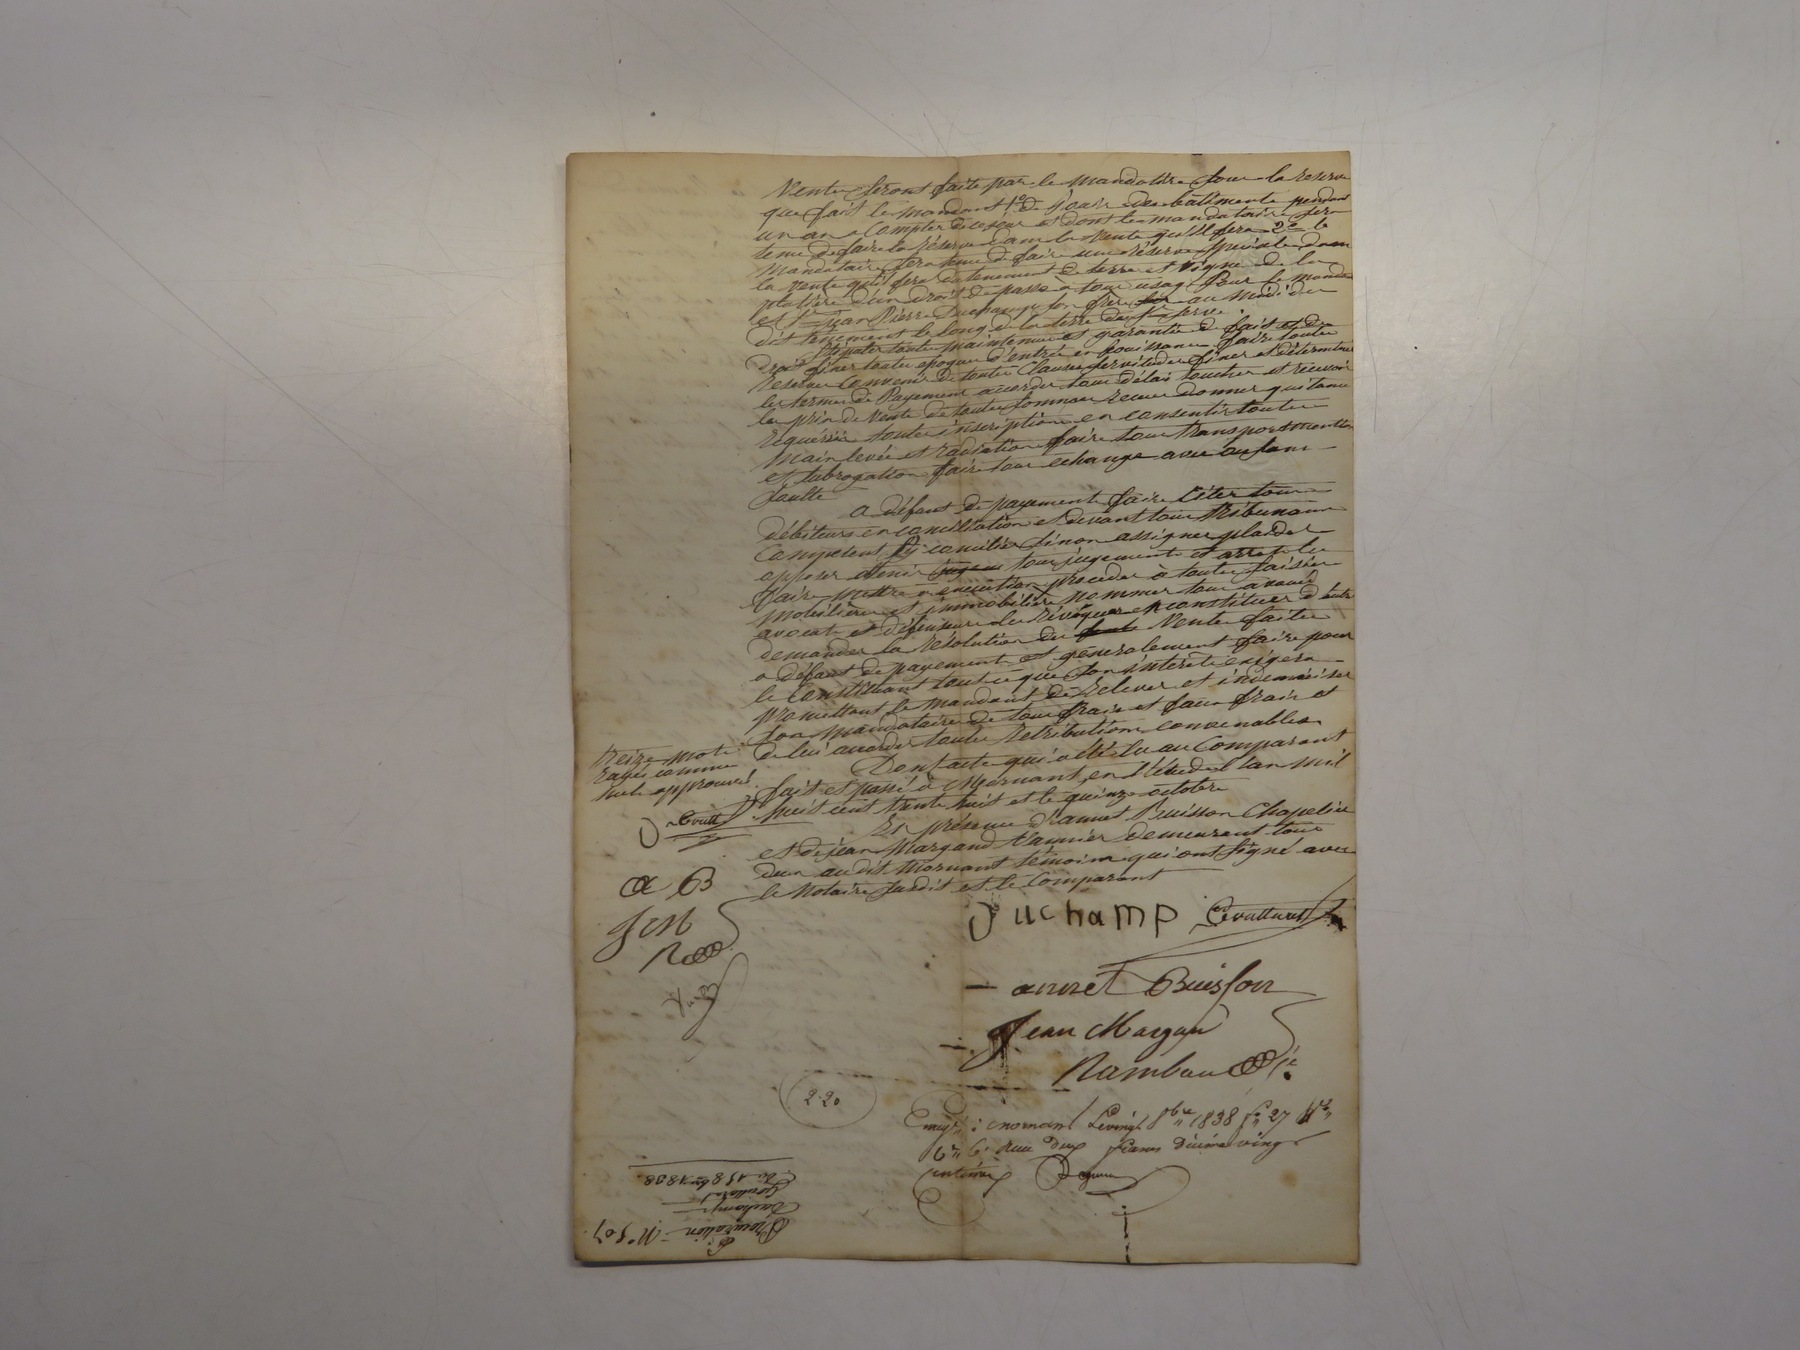 Ventes seront faite par le mandataire sous la reserve
que fait le mandant 1o de jouir des batiments pendant
un an a compter de ce jour et dont le mandataire sera
tenu de faire la réserve dans la vente qu'il fera 2o le
Mandataire sera tenu de faire une réserve spéciale dans
la vente qu'il fera du tenement de terre et vigne de la
d'un droit de passage a tour usage pour le mandant
et sr Jean Pierre Duchamp son frère au midi du
dit tenement le long de la terre de
Stipuler toute maintenue et garantie de fait et de
droit fixer toute epoque d'entrée en jouissance faire toute
reserve convenir de toute clause servitude fixer et déterminer
les termes de Payement accorder tous délais toucher et recevoir
les prix de vente de toute somme recue donner quitance
requérir toute inscription en consentir toute
main levée et radiation faire tous transport mention
et subrogation faire tous echange avec ou sans
soulte
a défaut de payement faire citer tous
débiteurs en conciliation et devant tous tribunaux
Competent sy concilier sinon assigner plaider
opposer obtenir tous jugement et arret les
faire mettre a execution proceder a toute saisie
mobilière et immobilière nommer tous avoué
avocat et défenseur les révoquer en constituer d'autre
demander la résolution des vente faites
a défaut de payement et generalement faire pour
le Constituant tout ce que son interet exigera
promettant le mandant de relever et indemniser
son mandataire de tous frais et faux frais et
de lui accorder toute retribution convenable
Dont acte qui a été lu au Comparant
fait et passé à Mornant en l'étude l'an mil
huit cent trente huit et le quinze octobre
En présence d'annet Buisson Chapelier
et de jean Margand demeurant tous
deux au dit Mornant témoins qui ont signé avec
le Notaire susdit et le Comparant
treize mots
rayés comme
nuls approuvés
a B
J M
R
Duchamp
annet Buisson
Jean Margan
Rambau
2.20
Enregé : a mornant le vingt 8bre 1838 fo 27 Vo
Cse 6. Reçu deux francs dixième vingt
centimes
Procuration No 507
Duchamp
Du 15 8bre 1838